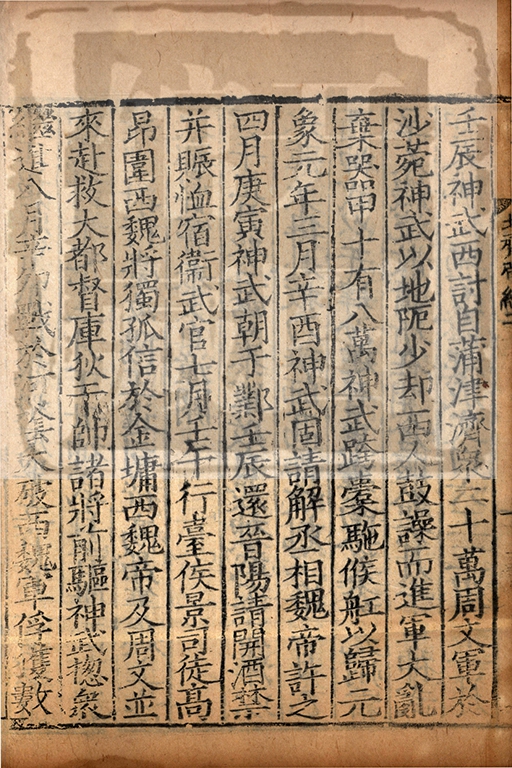 壬辰神武西討自蒲津濟衆二十萬周文軍於
沙菀神武以地阨少却西人鼓譟而進軍大亂
棄器甲十有八萬神武跨橐駞候舡以歸元
象元年三月辛酉神武固請解丞相魏帝許之
四月庚寅神武朝于鄴壬辰還晉陽請開酒禁
并賑恤宿衞武官七月壬午行臺侯景司徒髙
昂圍西魏將獨孤信於金墉西魏帝及周文並
來赴救大都督庫狄干帥諸將前驅神武揔衆
繼進八月辛卯戰於河隂大破西魏軍俘獲數